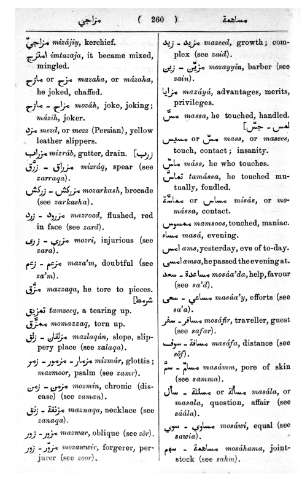 مزاجي ( 260 ) مساهمة
مزاجيّ mizájiy, kerchief.
امتزج imtazaja, it became mixed,
mingled.
مزح – مازح mazaha, or mázaha,
he joked, chaffed.
مزاح – مازح mozáh, joke, joking;
mázih, joker.
مزد mezd, or mezz (Persian), yellow
leather slippers.
مزراب mizráb, gutter, drain. [زرب
مزراق – زرق mizráq, spear (see
zarraqa).
مزركش – زركش mozarkash, brocade
(see zarkasha).
مزرود – زرد mazrood, flushed, red
in face (see zard).
مزري – زرى mozri, injurious (see
zara).
مزعم – زعم maza'm, doubtful (see
za'm).
مزّق mazzaqa, he tore to pieces.
[شرمط
تمزيق tamzeeq, a tearing up.
ممزّق momazzaq, torn up.
مزلقان – زلق mazlaqán, slope, slip-
pery place (see zalaqa).
مزمار – مزمور – زمر mizmár, glottis;
mazmoor, psalm (see zamr).
مزمن – زمن mozmin, chronic (dis-
ease) (see zaman).
مزنقة – زنق maznaqa, necklace (see
zanaqa).
مزور – زور mazwar, oblique (see zôr).
مزوّر – زور mozawwir, forgerer, per-
juror (see zoor).
مزيد – زيد mazeed, growth; com-
plex (see zaid).
مزيّن – زين mozayyin, barber (see
zain).
مزايا mazáyá, advantages, merits,
privileges.
مسّ massa, he touched, handled.
[لمس – جسّ
مسّ or مسيس mass, or masees,
touch, contact; insanity.
ماسّ máss, he who touches.
تماسّ tamássa, he touched mut-
ually, fondled.
مساس or مماسّة misás, or mo-
mássa, contact.
ممسوس mamsoos, touched, maniac.
مساء masá, evening.
امس ams, yesterday, eve of to-day.
امسى amsa, he passed the evening at.
مساعدة – سعد mosáa'da, help, favour
(see sa'd).
مساعي – سعى mosáa'y, efforts (see
sa'a).
مسافر – سفر mosáfir, traveller, guest
(see safar).
مسافة – سوف masáfa, distance (see
sôf).
مسامّ – سمّ masámm, pore of skin
(see samma).
مسألة or مسالة – سأل masála, or
masala, question, affair (see
sáála).
مساوي – سوي mosáwi, equal (see
sawia).
مساهمة – سهم mosáhama, joint-
stock (see sahm).